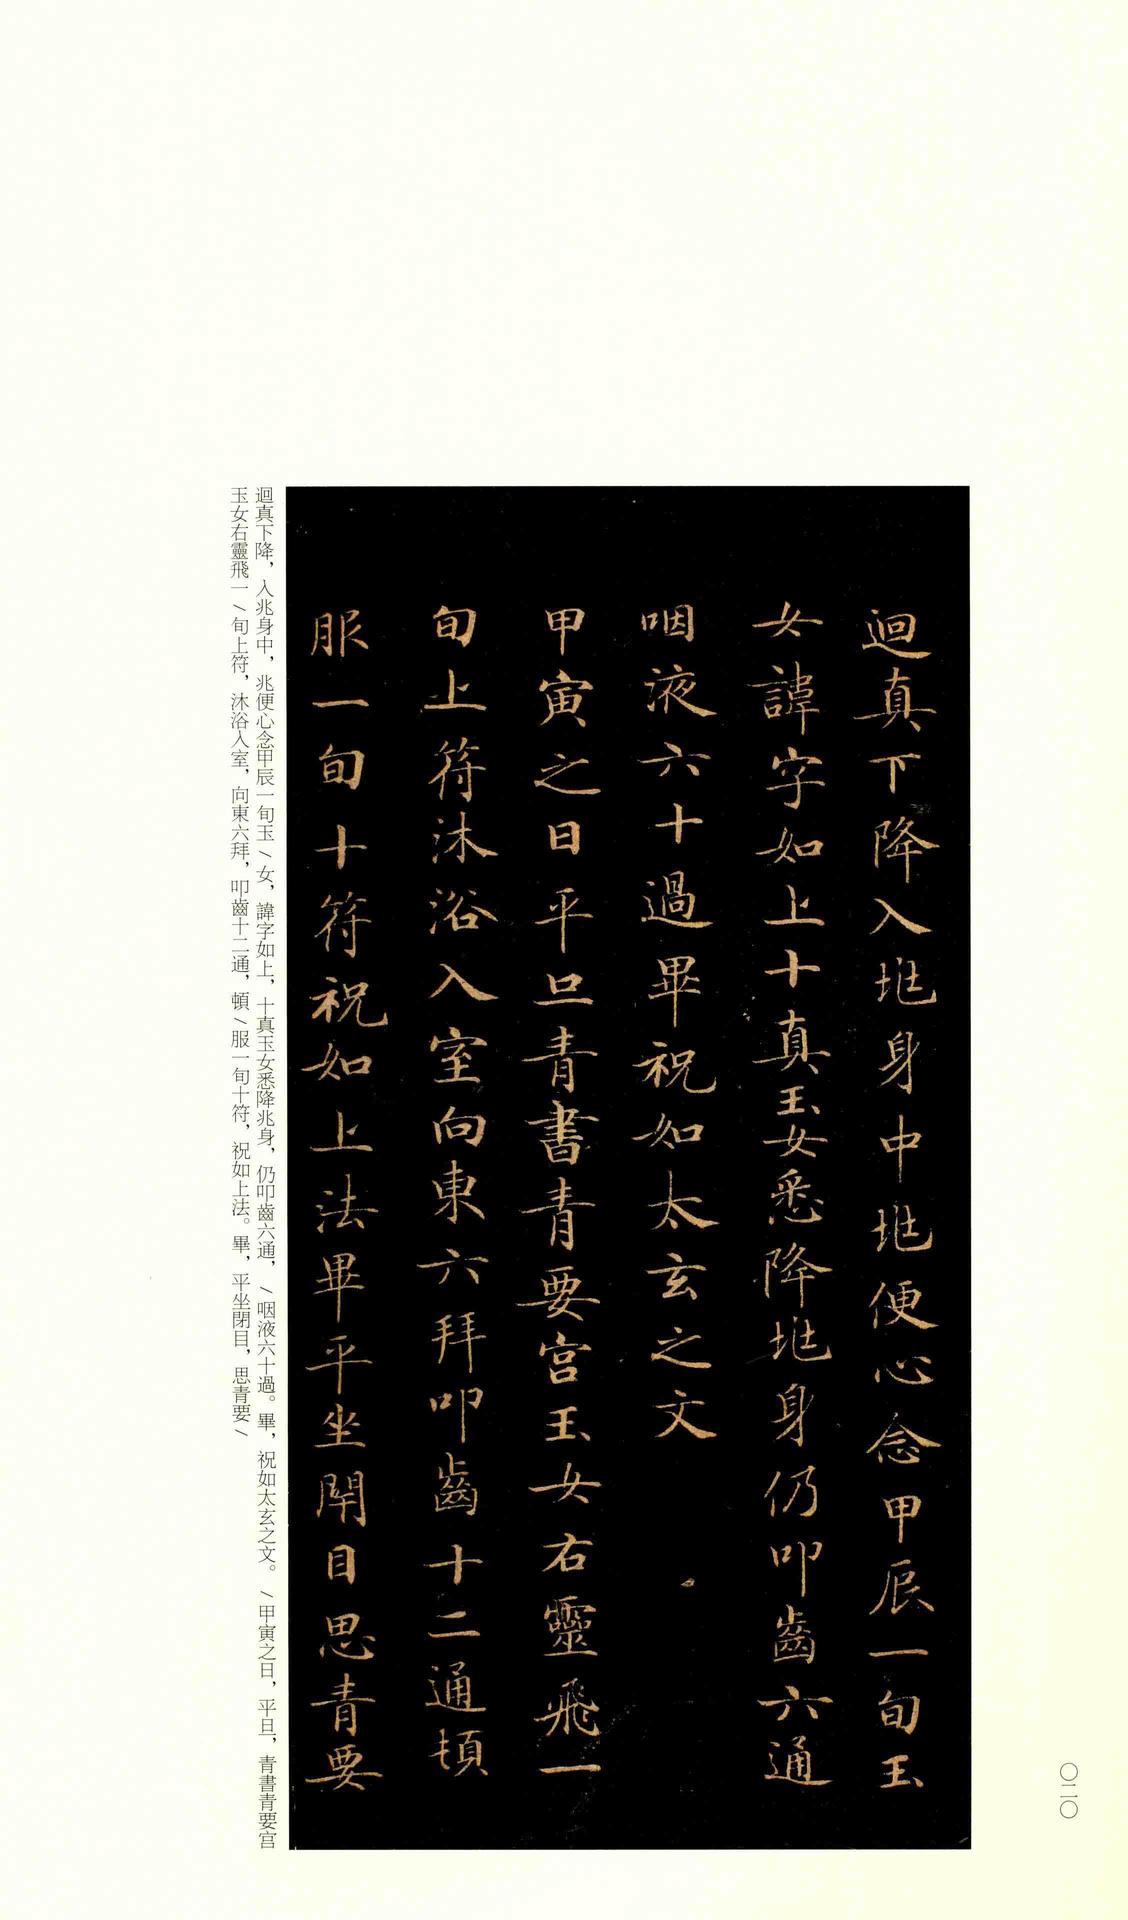 迴真下降入兆身中兆便心念甲辰一旬玉
女諱字如上十真玉女悉降兆身仍叩齒六通
咽液六十過畢祝如太玄之文
甲寅之日平旦青書青要宮玉女右靈飛一
旬上符沐浴入室向東六拜叩齒十二通頓
服一旬十符祝如上法畢平坐閉目思青要
迴真下降，入兆身中，兆便心念甲辰一旬玉/女，諱字如上，十真玉女悉降兆身，仍叩齒六通，/咽液六十過。畢，祝如太玄之文。/甲寅之日，平旦，青書青要宮
玉女右靈飛一/旬上符，沐浴入室，向東六拜，叩齒十二通，頓/服一旬十符，祝如上法。畢，平坐閉目，思青要/
〇二〇